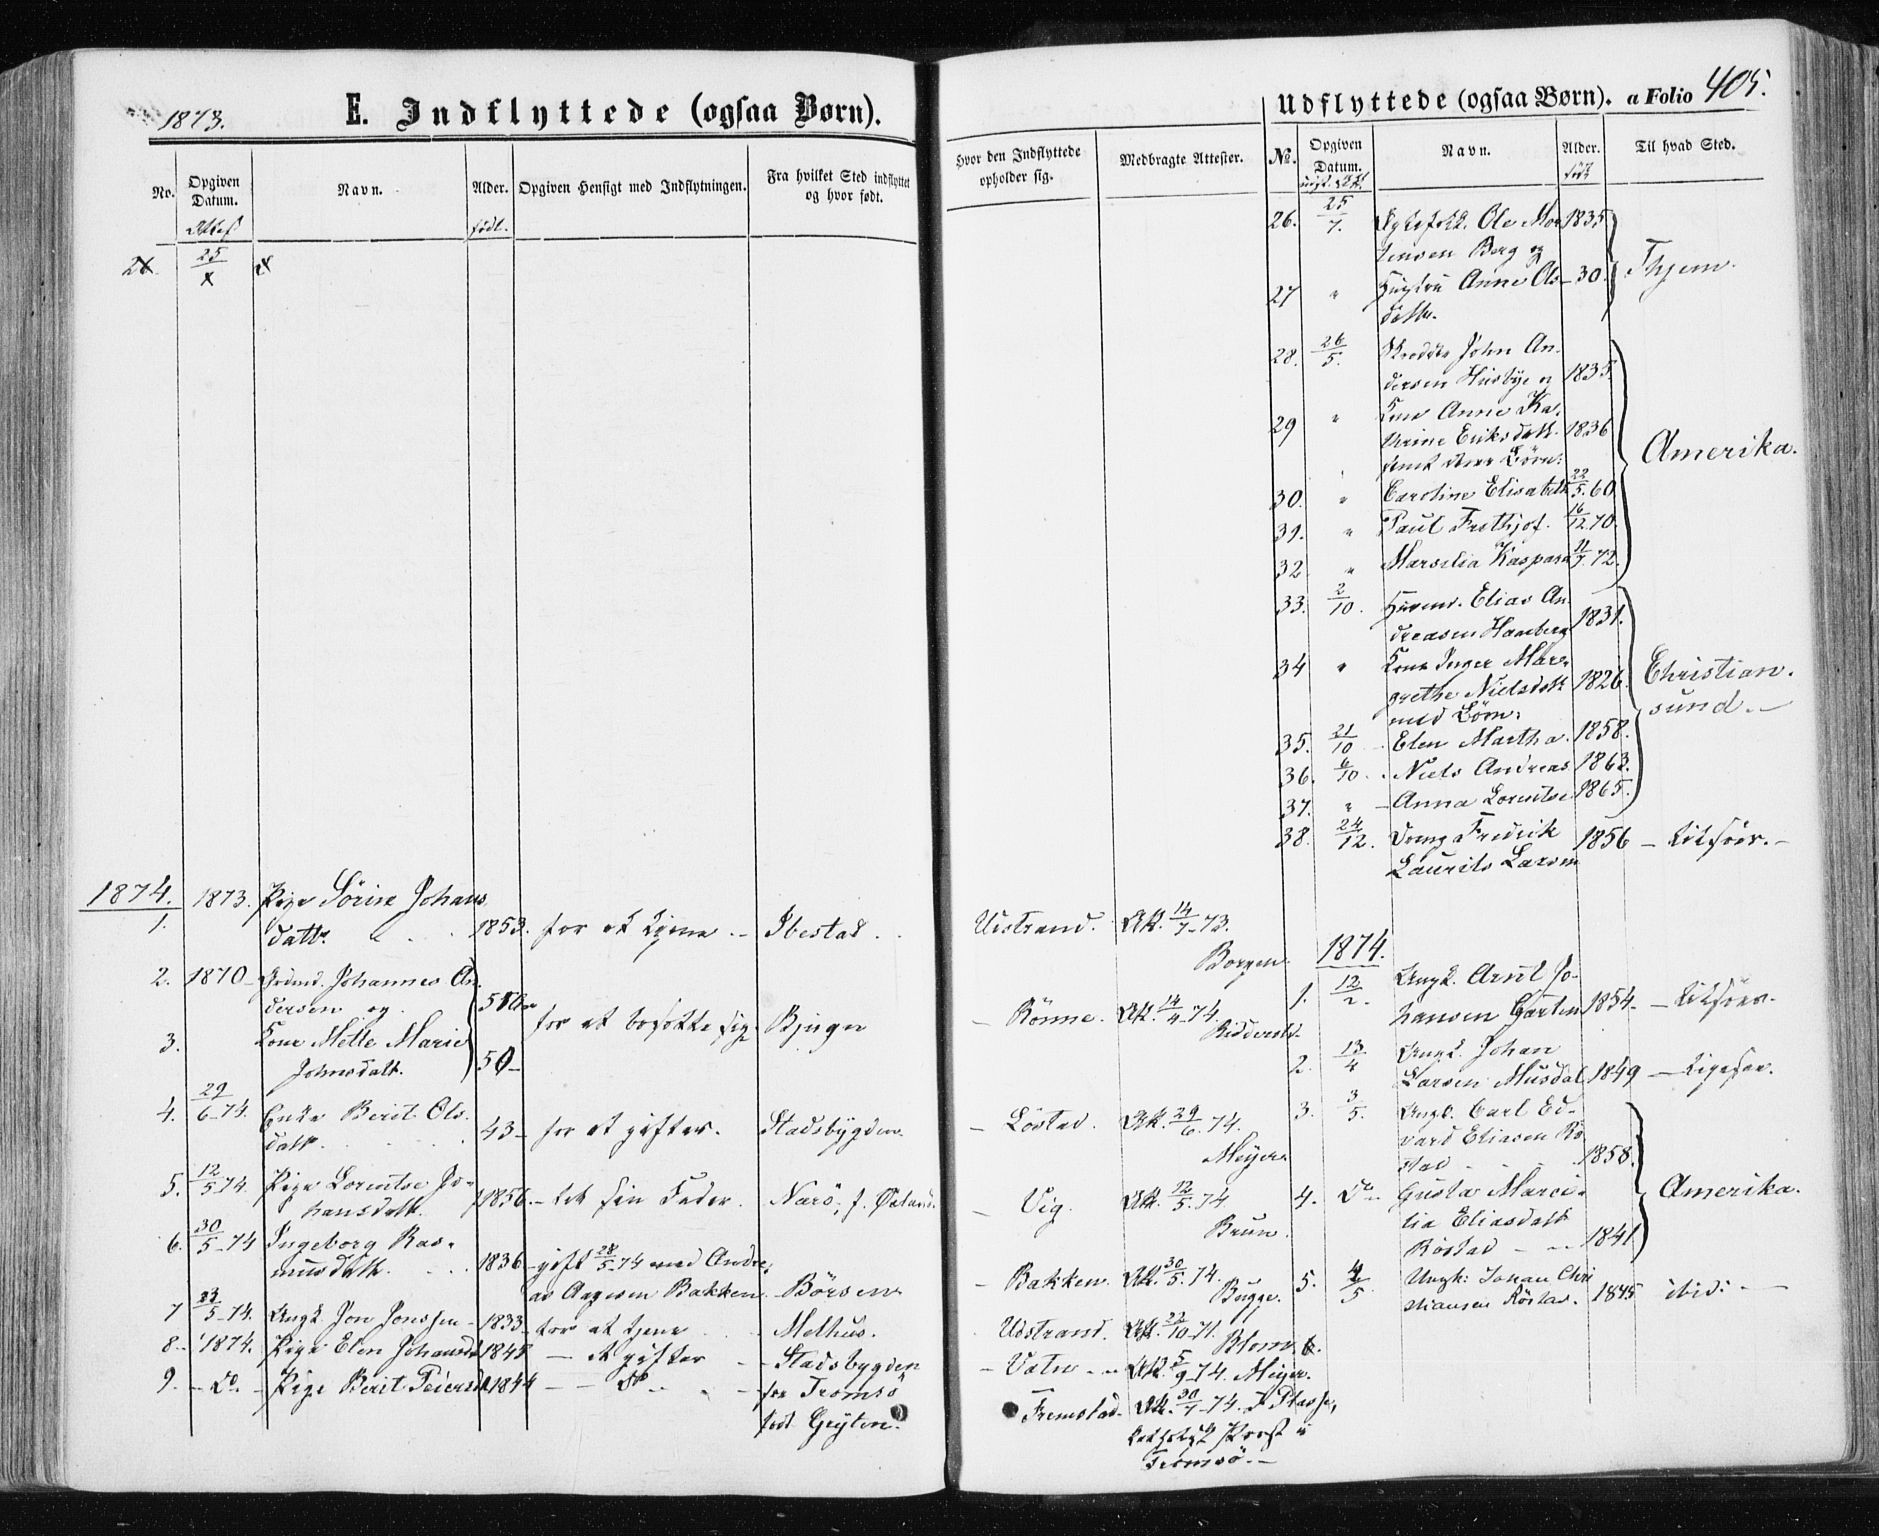 1873.
E. Indflyttede (ogsaa Børn).
No.
Opgiven Datum.
Navn.
Alder.
Opgiven Hensigt med Indflytningen.
Fra hvilket Sted indflyttet og hvor født.
Attest
født.
25
1874.
1. 1873. Pige Sørine Johans 1853. for at tjene. - Ibestad.
datt.
2. 1870 - Johannes An
dersen og
for at bosætte sig. Bjugn
3. Kone Mette Marie 50 -
Johnsdatt.
4. 29/6 - 74. Enke Berit Ols 43 - for at giftes. Stadsbygden.
datt.
5. 12/5 74. Pige Lorentse Jo- 1856. - til sin Fader. Narö, f. Ørland.
hansdatt.
6. 30/5 - 74 Ingeborg Ras- 1836 - gift 28/5 - 74 med Andre-
musdatt. as Aagesen Bakken - Börsen
7 23/5 - 74. Ungk. Jon Jonssen - 1833 - for at tjene - Melhus.
8. - 1874. Pige Elen Johansd. 1845 - at giftes - Stadsbygden
9. - Do. - Pige Berit Peiersd. 1844 - - Do - fra Tromsö
født Gryten.
Udflyttede (ogsaa Børn). a Folio 405.
Hvor den Indflyttede opholder sig.
Medbragte Attester.
No.
Opgiven Datum.
Navn.
Alder.
Til hvad Sted.
født
26. 25/7. Ole Mor 1835
tensen Berg og
27 " Hustru Anne Ols - 30.
datter.
Thjem.
28. 26/5. John An-
dersen Husbye og 1835.
29 " Kone Anne Ka-
thrine Eriksdatt. 1836
samt deres Börn:
30. " Caroline Elisabeth 22/5. 60.
31. " Paul Frithjof. 16/12 70.
32 " Marselia Kaspara 11/7. 72.
Amerika.
33. 2/10. Elias An
dreasen Hamberg 1831.
34 " Kone Inger Mar-
grethe Nielsdatt. 1826.
med Börn:
35. 21/10 - Elen Martha. 1858.
36. 6/10. - Niels Andreas 1863.
37. " - Anna Lorentse 1865.
Christian-
sund. -
38. 24/12. Dreng Fredrik 1856 - Hitteröen. -
Laurits Larsen
Udstrand. Att. 14/7 - 73.
Borgen.
1874.
1. 12/2. Ungk. Arnt Jo-
hansen Garten 1854 - Hitteröen.
- Rönne. Att. 14/4 - 74.
2. 13/4 Ungk. Johan
Larsen Musdal 1849
- Löstad. Att. 29/6. 74.
Meyer.
3. 3/5. Ungk. Carl Ed-
vard Eliasen Rö-
stad - 1858.
- Vig. Att. 12/5. 74
Brun.
4. Do. Gusta Marci-
lia Eliasdatt.
Röstad - 1841
Amerika.
- Bakken. Att. 30/5. 74.
Bugge.
5. 4/5 Ungk. Johan Chri
stiansen Röstad. 1845 ibid: -
Udstrand. Att. 22/10 - 71. Blom.
- Vatn - Att. 5/9 - 74. Meyer.
Fremstad. Att. 30/7 - 74.
Katholsk Præst i
Tromsö. -